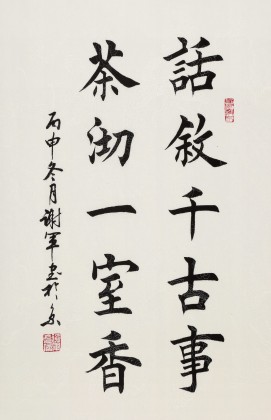 話敘千古事
茶沏一室香
丙申冬月謝軍書於京